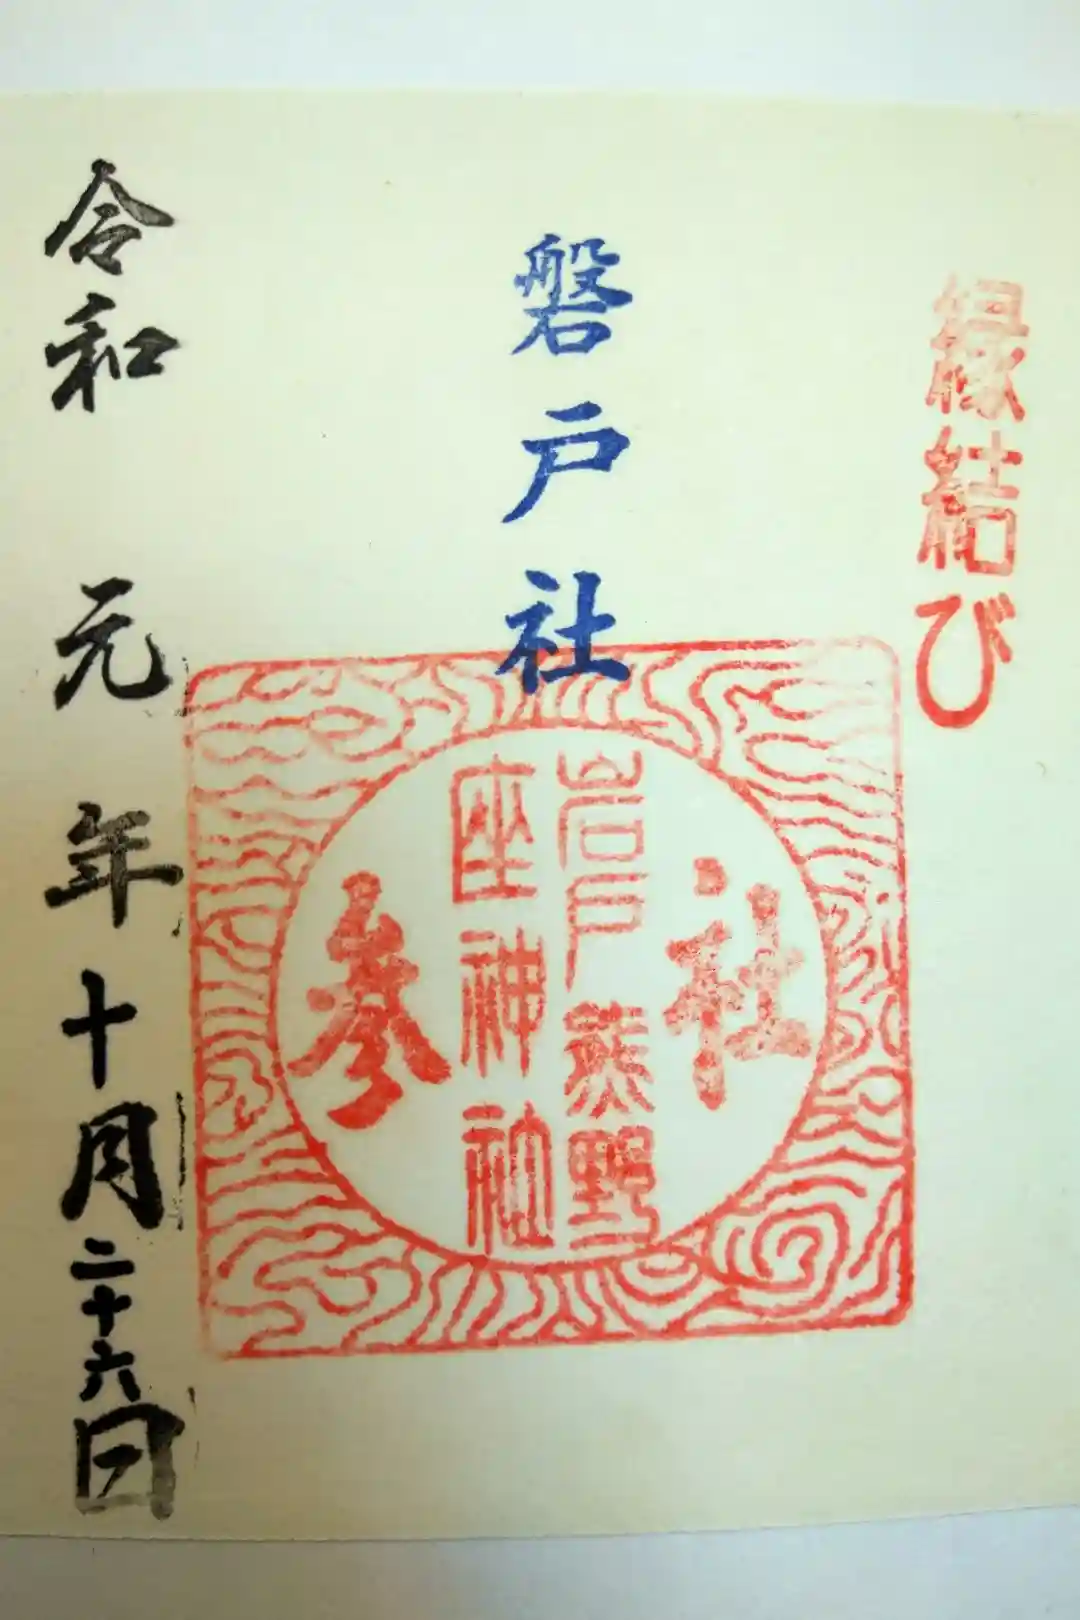 縁結び
磐戸社
社参
岩戸熊野
座神社
令和元年十月二十六日